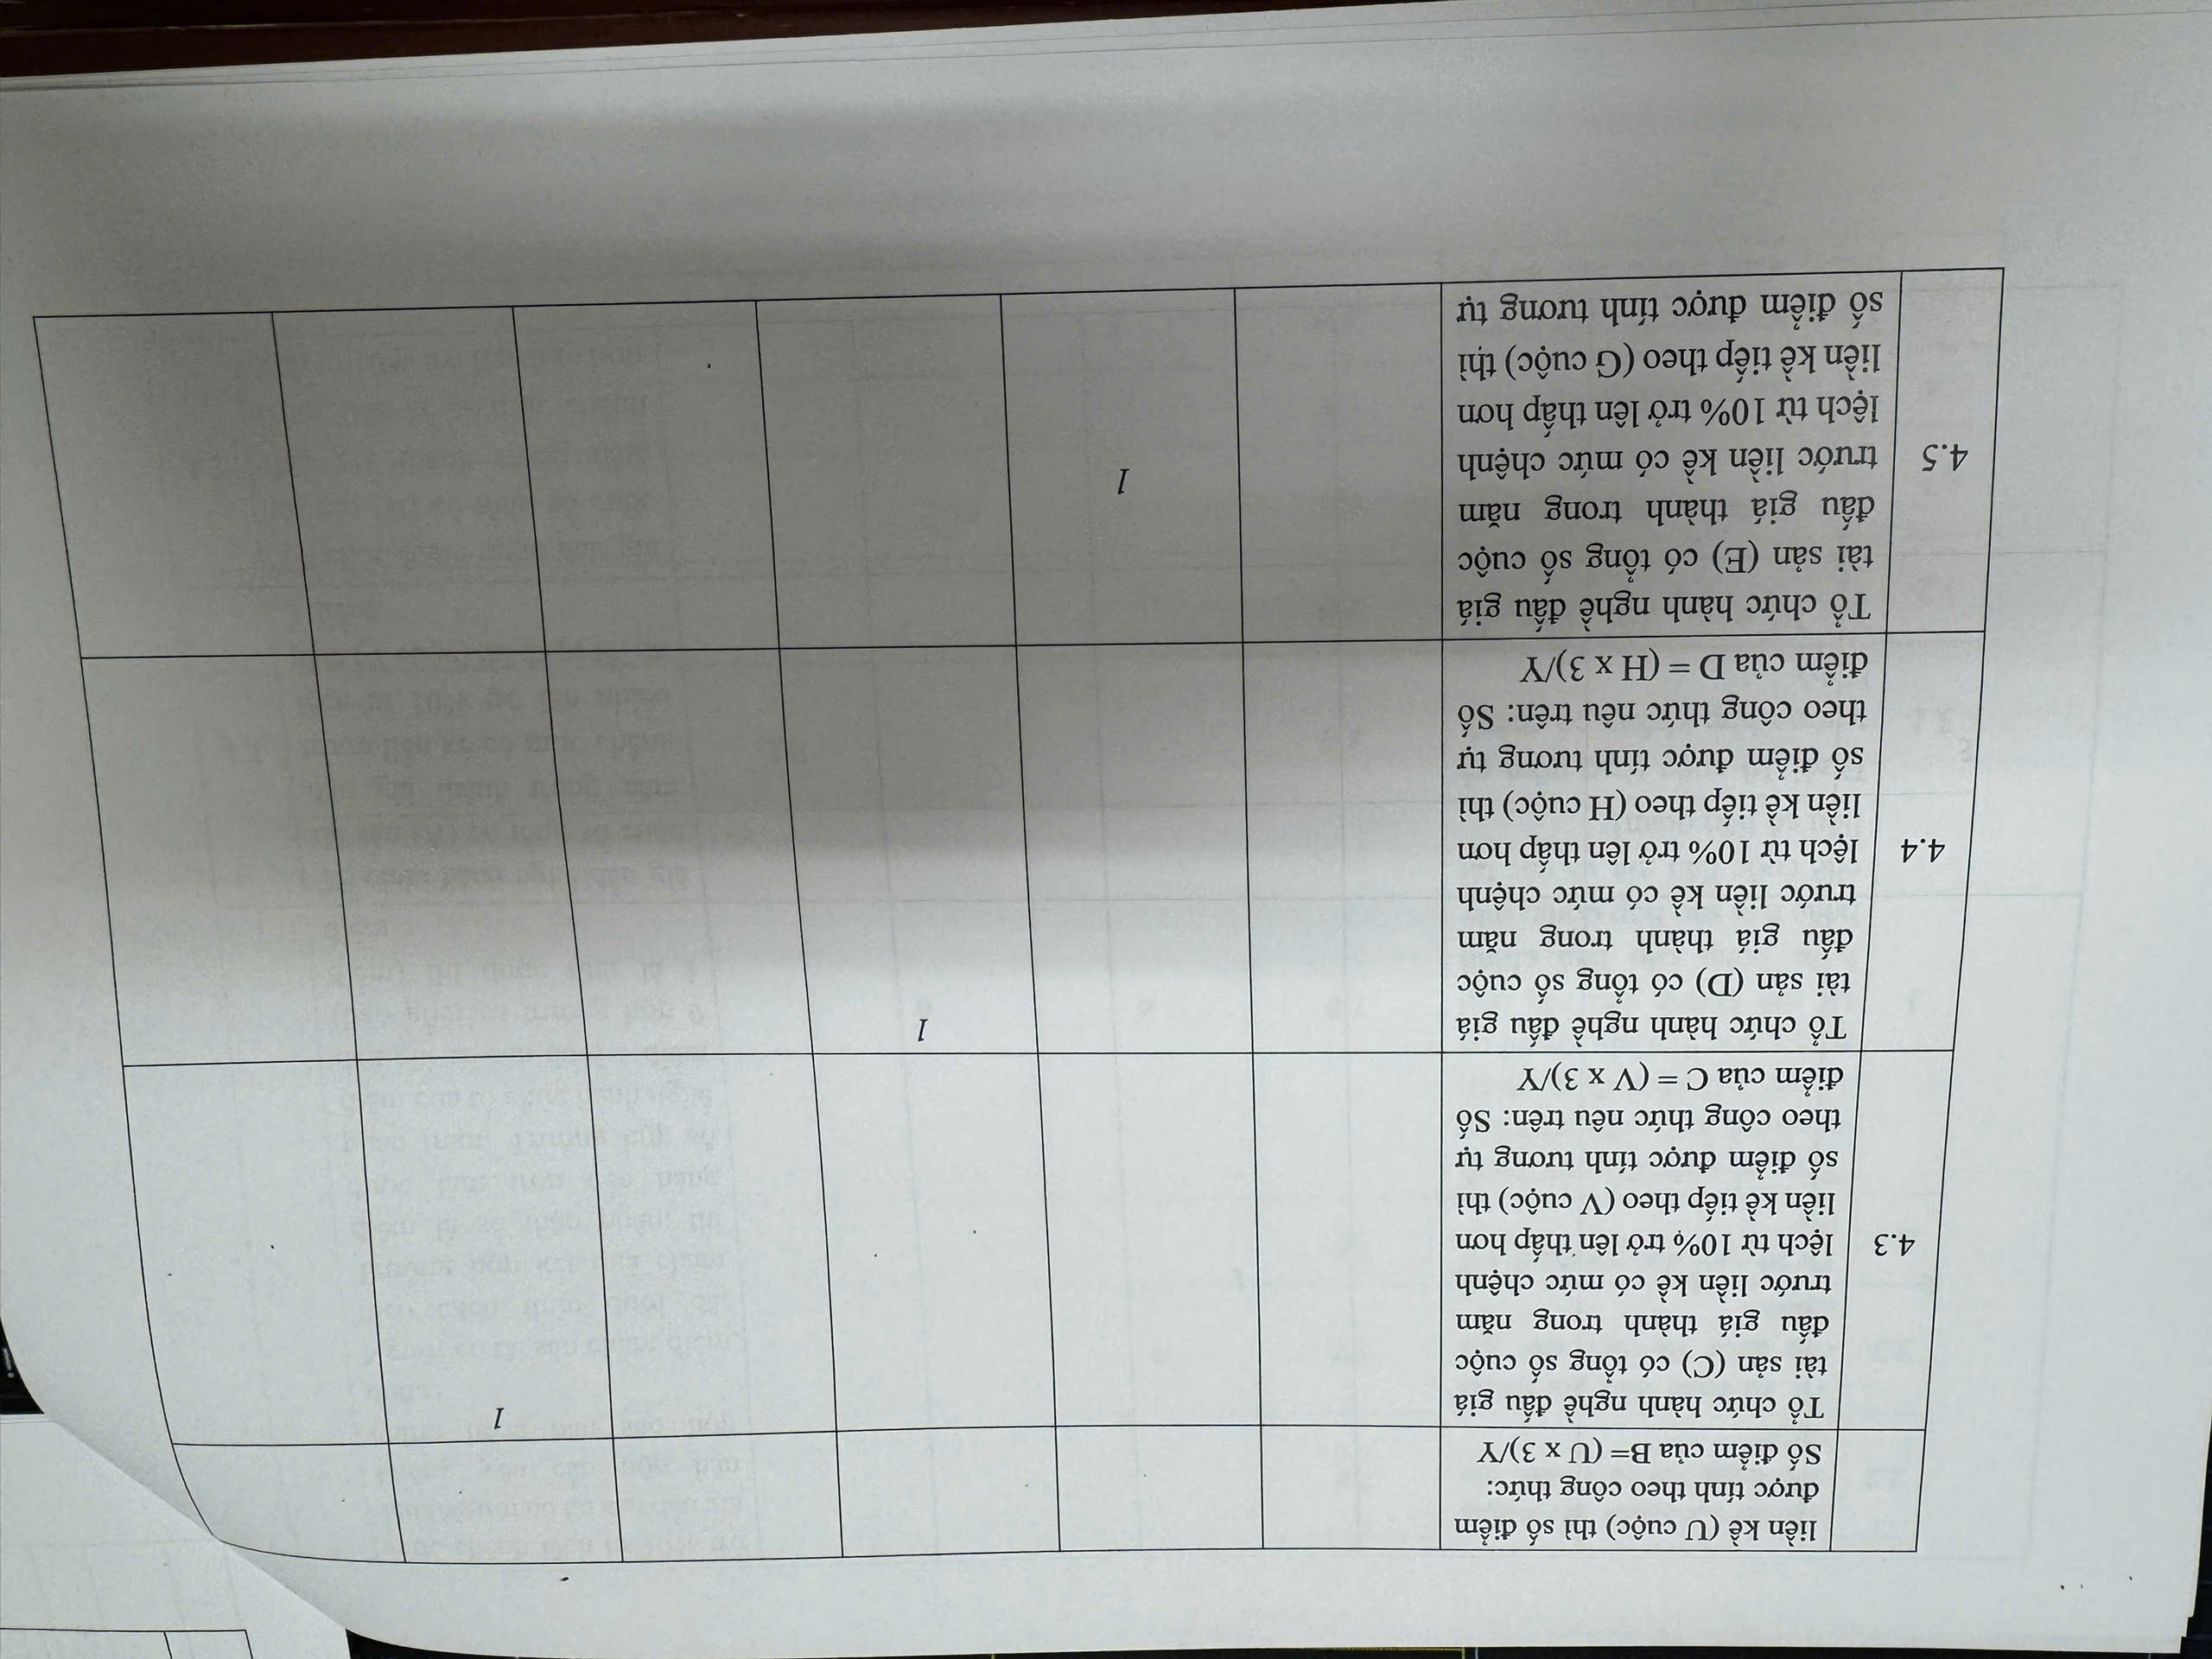 liền kề (U cuộc) thì số điểm
được tính theo công thức:
Số điểm của B= (U x 3)/Y
4.3
Tổ chức hành nghề đấu giá
tài sản (C) có tổng số cuộc
đấu giá thành trong năm
trước liền kề có mức chệnh
lệch từ 10% trở lên thấp hơn
liền kề tiếp theo (V cuộc) thì
số điểm được tính tương tự
theo công thức nêu trên: Số
điểm của C = (V x 3)/Y
1
4.4
Tổ chức hành nghề đấu giá
tài sản (D) có tổng số cuộc
đấu giá thành trong năm
trước liền kề có mức chệnh
lệch từ 10% trở lên thấp hơn
liền kề tiếp theo (H cuộc) thì
số điểm được tính tương tự
theo công thức nêu trên: Số
điểm của D = (H x 3)/Y
1
4.5
Tổ chức hành nghề đấu giá
tài sản (E) có tổng số cuộc
đấu giá thành trong năm
trước liền kề có mức chệnh
lệch từ 10% trở lên thấp hơn
liền kề tiếp theo (G cuộc) thì
số điểm được tính tương tự
1